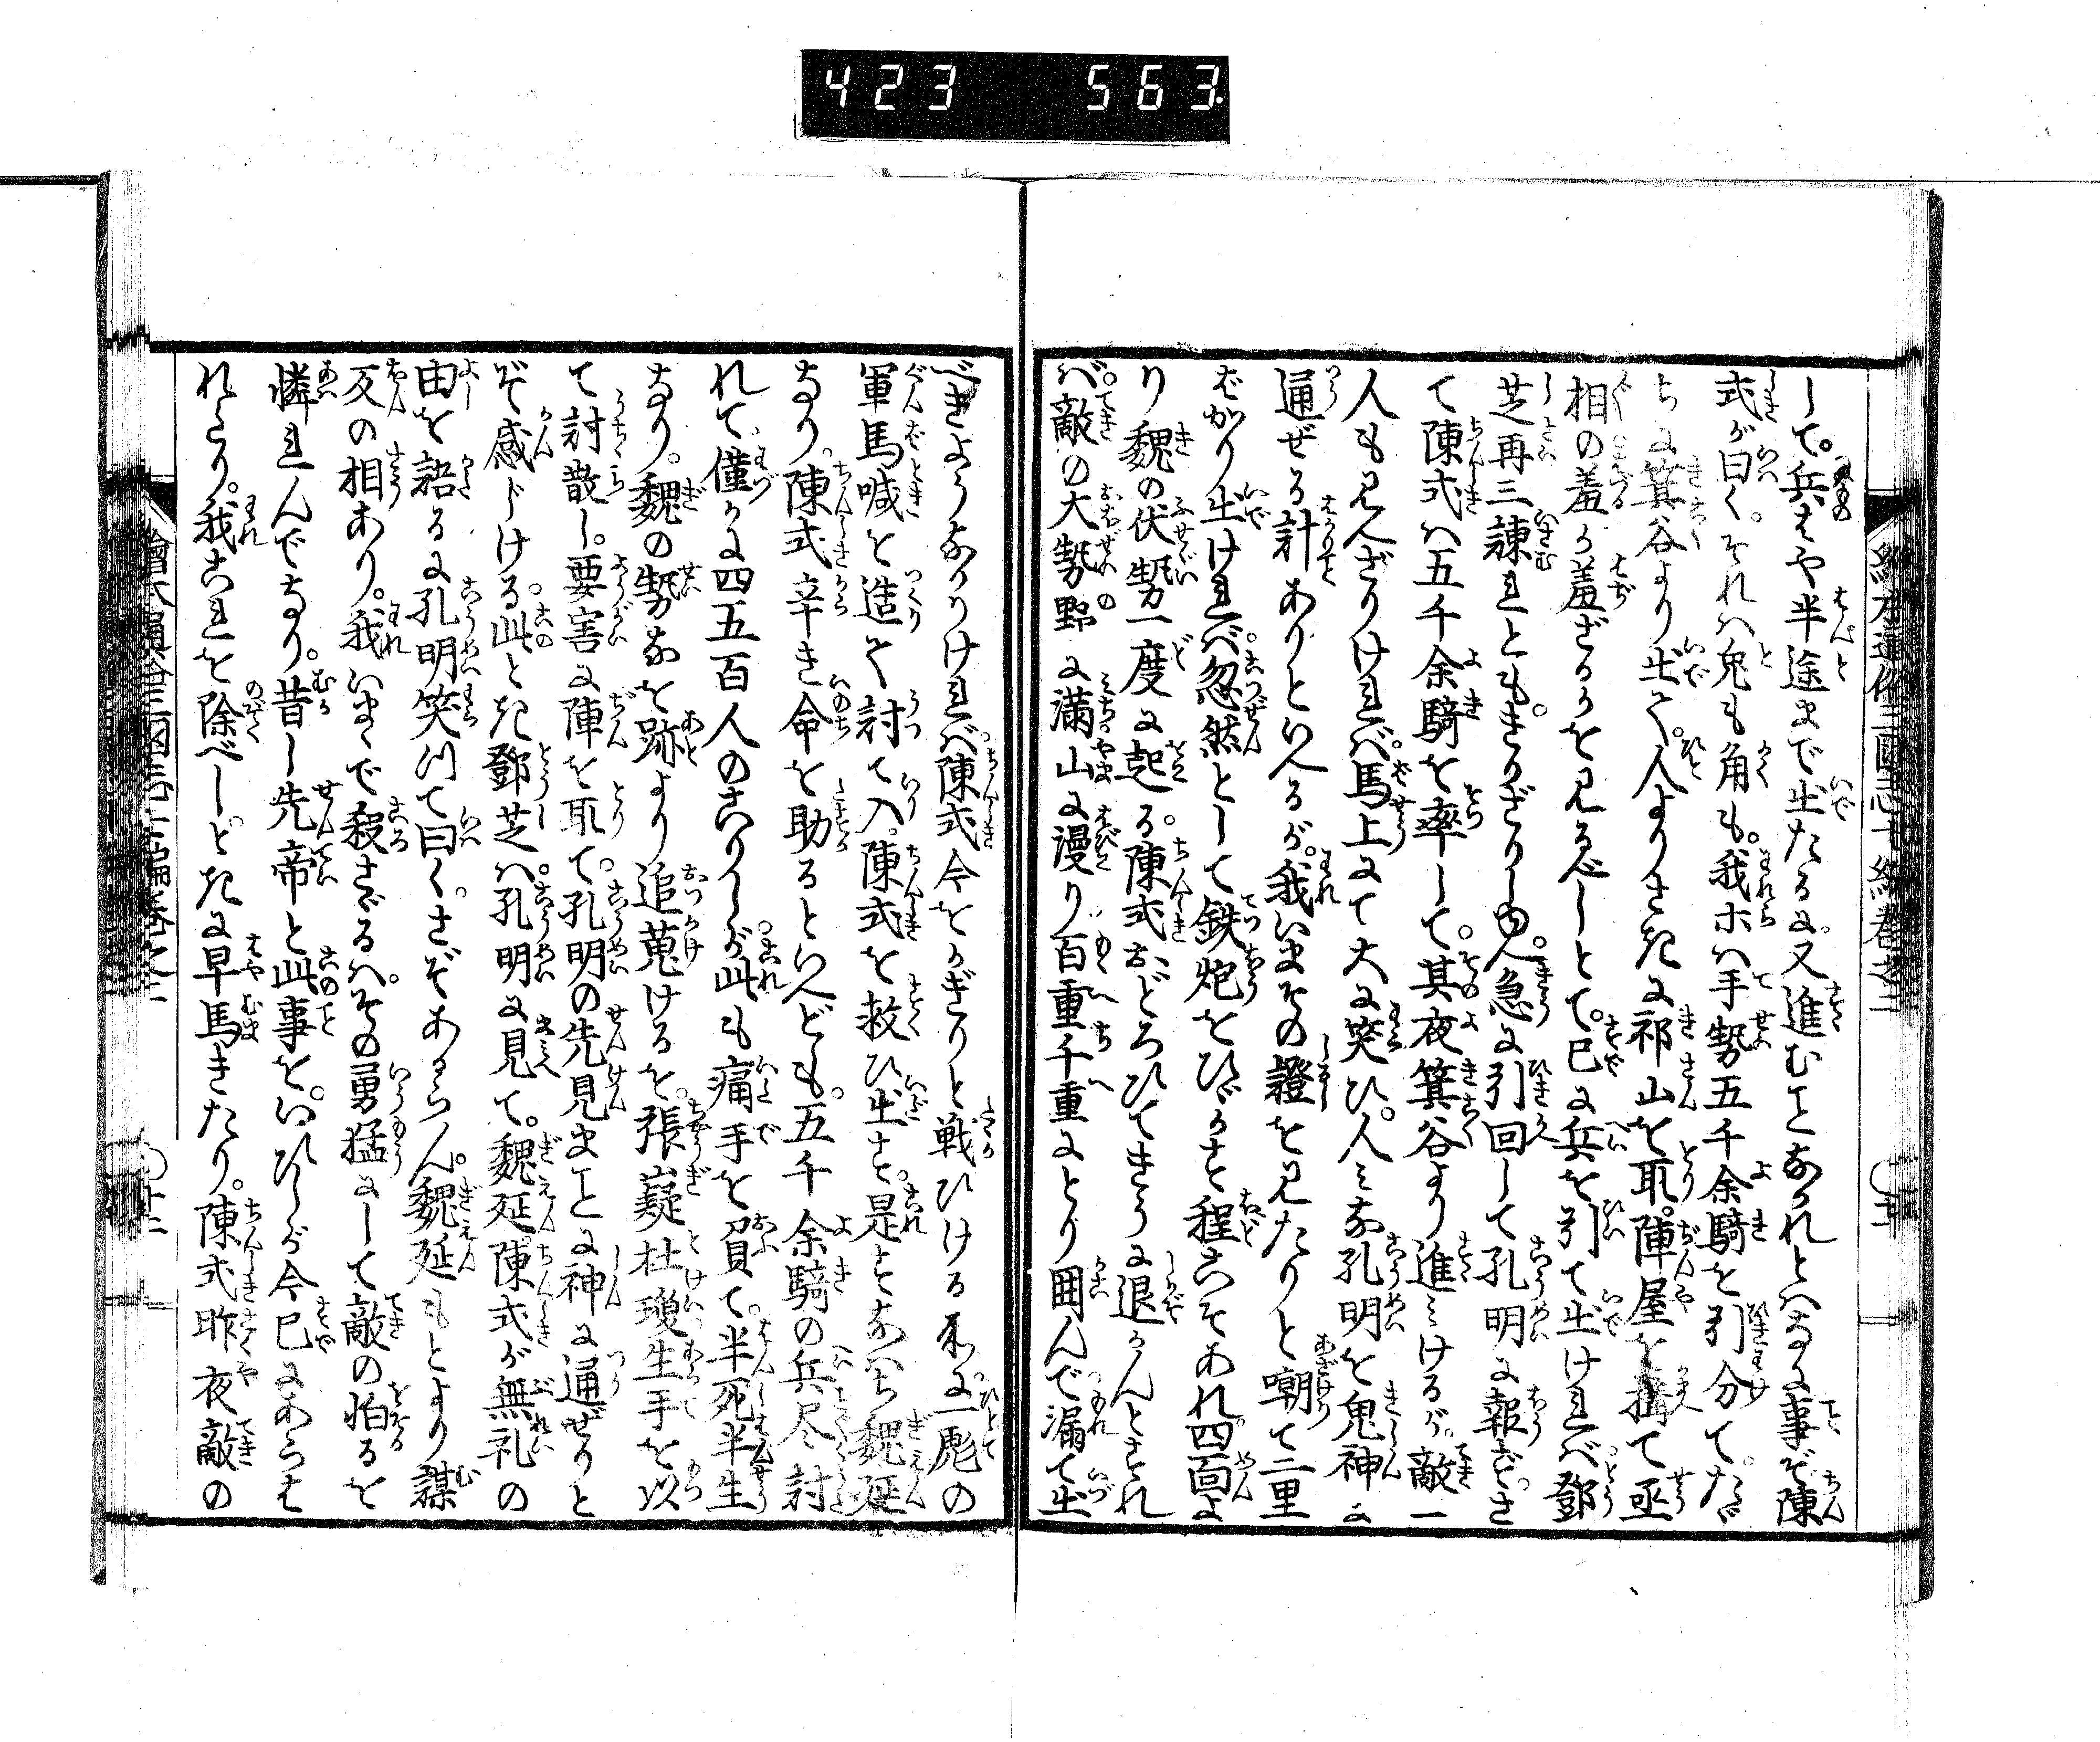 423 563.
して。兵はや半途まで出たるに又進むことなかれとはなに事ぞ陳
式が曰く。それは兎も角も。我ホは手勢五千余騎を引分て。たゞ
ちに箕谷より出で。人よりさきに祁山を取。陣屋を搆て丞
相の羞る羞ざるかを見るべしとて。已に兵を引て出ければ鄧
芝再三諌れとも。きかざりしゆへ。急に引回して孔明に報ぜさ
て陳式は五千余騎を率して。其夜箕谷より進みけるが。敵一
人も見えざりければ。馬上にて大に笑ひ。人みな孔明を鬼神に
通ぜる計ありといへるが。我いまその證を見たりと嘲て二里
ばかり出ければ。忽然として鉄炮をひゞかすと程こそあれ四面よ
り魏の伏勢一度に起る。陳式おどろひてきうに退かんとすれ
ば。敵の大勢野に満山に漫り百重千重にとり囲んで漏て出
べきようなかりければ陳式今をかぎりと戦ひける所に一彪の
軍馬喊を造て討て入。陳式を救ひ出す。是すなはち魏延
なり。陳式辛き命を助るといへども。五千余騎の兵尽討
れて。僅かに四五百人のこりしが。此も痛手を負て。半死半生
なり。魏の勢なを跡より追蒐けるを。張嶷杜瓊生手を以
て討散し。要害に陣を取て。孔明の先見まことに神に通ぜりと
ぞ感じける。此とき鄧芝は。孔明に見て。魏延陳式が無礼の
由を語るに孔明笑つて曰く。さぞあるらん。魏延もとより謀
反の相あり。我いまゝで殺さゞるは。その勇猛にして敵の怕るを
憐れんでなり。昔し先帝と此事を。いひしが今已にあらは
れたり。我これを除べしと。ときに早馬きたり。陳式昨夜敵の